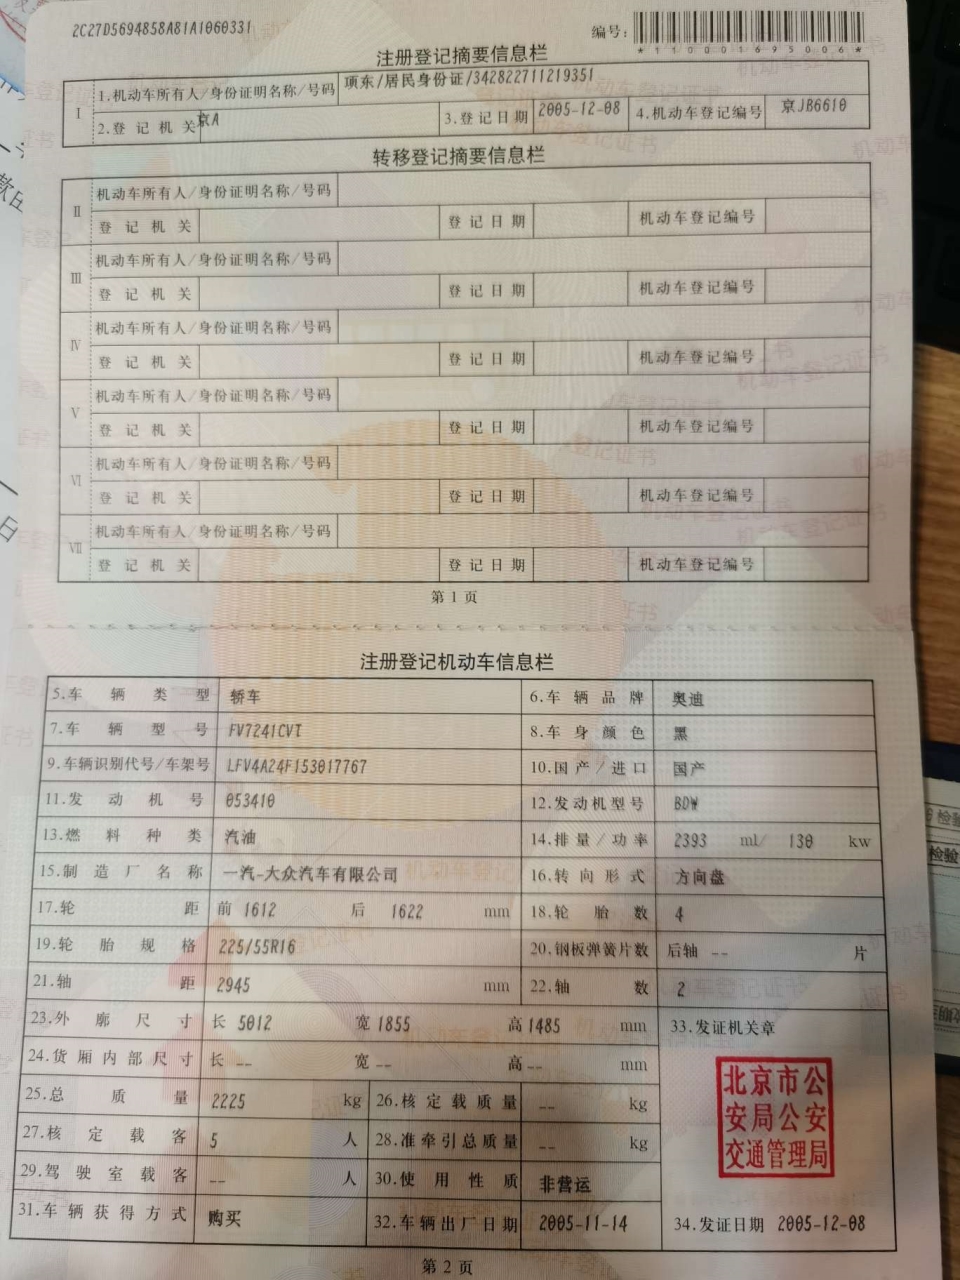 2C27D5694858A81A1060331
编号:
*110001695006*
注册登记摘要信息栏
I 1.机动车所有人/身份证明名称/号码 项东/居民身份证/342822711219351
2.登记机关 京A 3.登记日期 2005-12-08 4.机动车登记编号 京JB6610
转移登记摘要信息栏
II 机动车所有人/身份证明名称/号码
登记机关 登记日期 机动车登记编号
III 机动车所有人/身份证明名称/号码
登记机关 登记日期 机动车登记编号
IV 机动车所有人/身份证明名称/号码
登记机关 登记日期 机动车登记编号
V 机动车所有人/身份证明名称/号码
登记机关 登记日期 机动车登记编号
VI 机动车所有人/身份证明名称/号码
登记机关 登记日期 机动车登记编号
VII 机动车所有人/身份证明名称/号码
登记机关 登记日期 机动车登记编号
第1页
注册登记机动车信息栏
5.车辆类型 轿车 6.车辆品牌 奥迪
7.车辆型号 FV7241CVT 8.车身颜色 黑
9.车辆识别代号/车架号 LFV4A24F153017767 10.国产/进口 国产
11.发动机号 053410 12.发动机型号 BDW
13.燃料种类 汽油 14.排量/功率 2393 ml/ 130 kw
15.制造厂名称 一汽-大众汽车有限公司 16.转向形式 方向盘
17.轮距 前 1612 后 1622 mm 18.轮胎数 4
19.轮胎规格 225/55R16 20.钢板弹簧片数 后轴 -- 片
21.轴距 2945 mm 22.轴数 2
23.外廓尺寸 长 5012 宽 1855 高 1485 mm 33.发证机关章
24.货厢内部尺寸 长 -- 宽 -- 高 -- mm
25.总质量 2225 kg 26.核定载质量 -- kg
北京市公
安局公安
交通管理局
27.核定载客 5 人 28.准牵引总质量 -- kg
29.驾驶室载客 -- 人 30.使用性质 非营运
31.车辆获得方式 购买 32.车辆出厂日期 2005-11-14 34.发证日期 2005-12-08
第2页